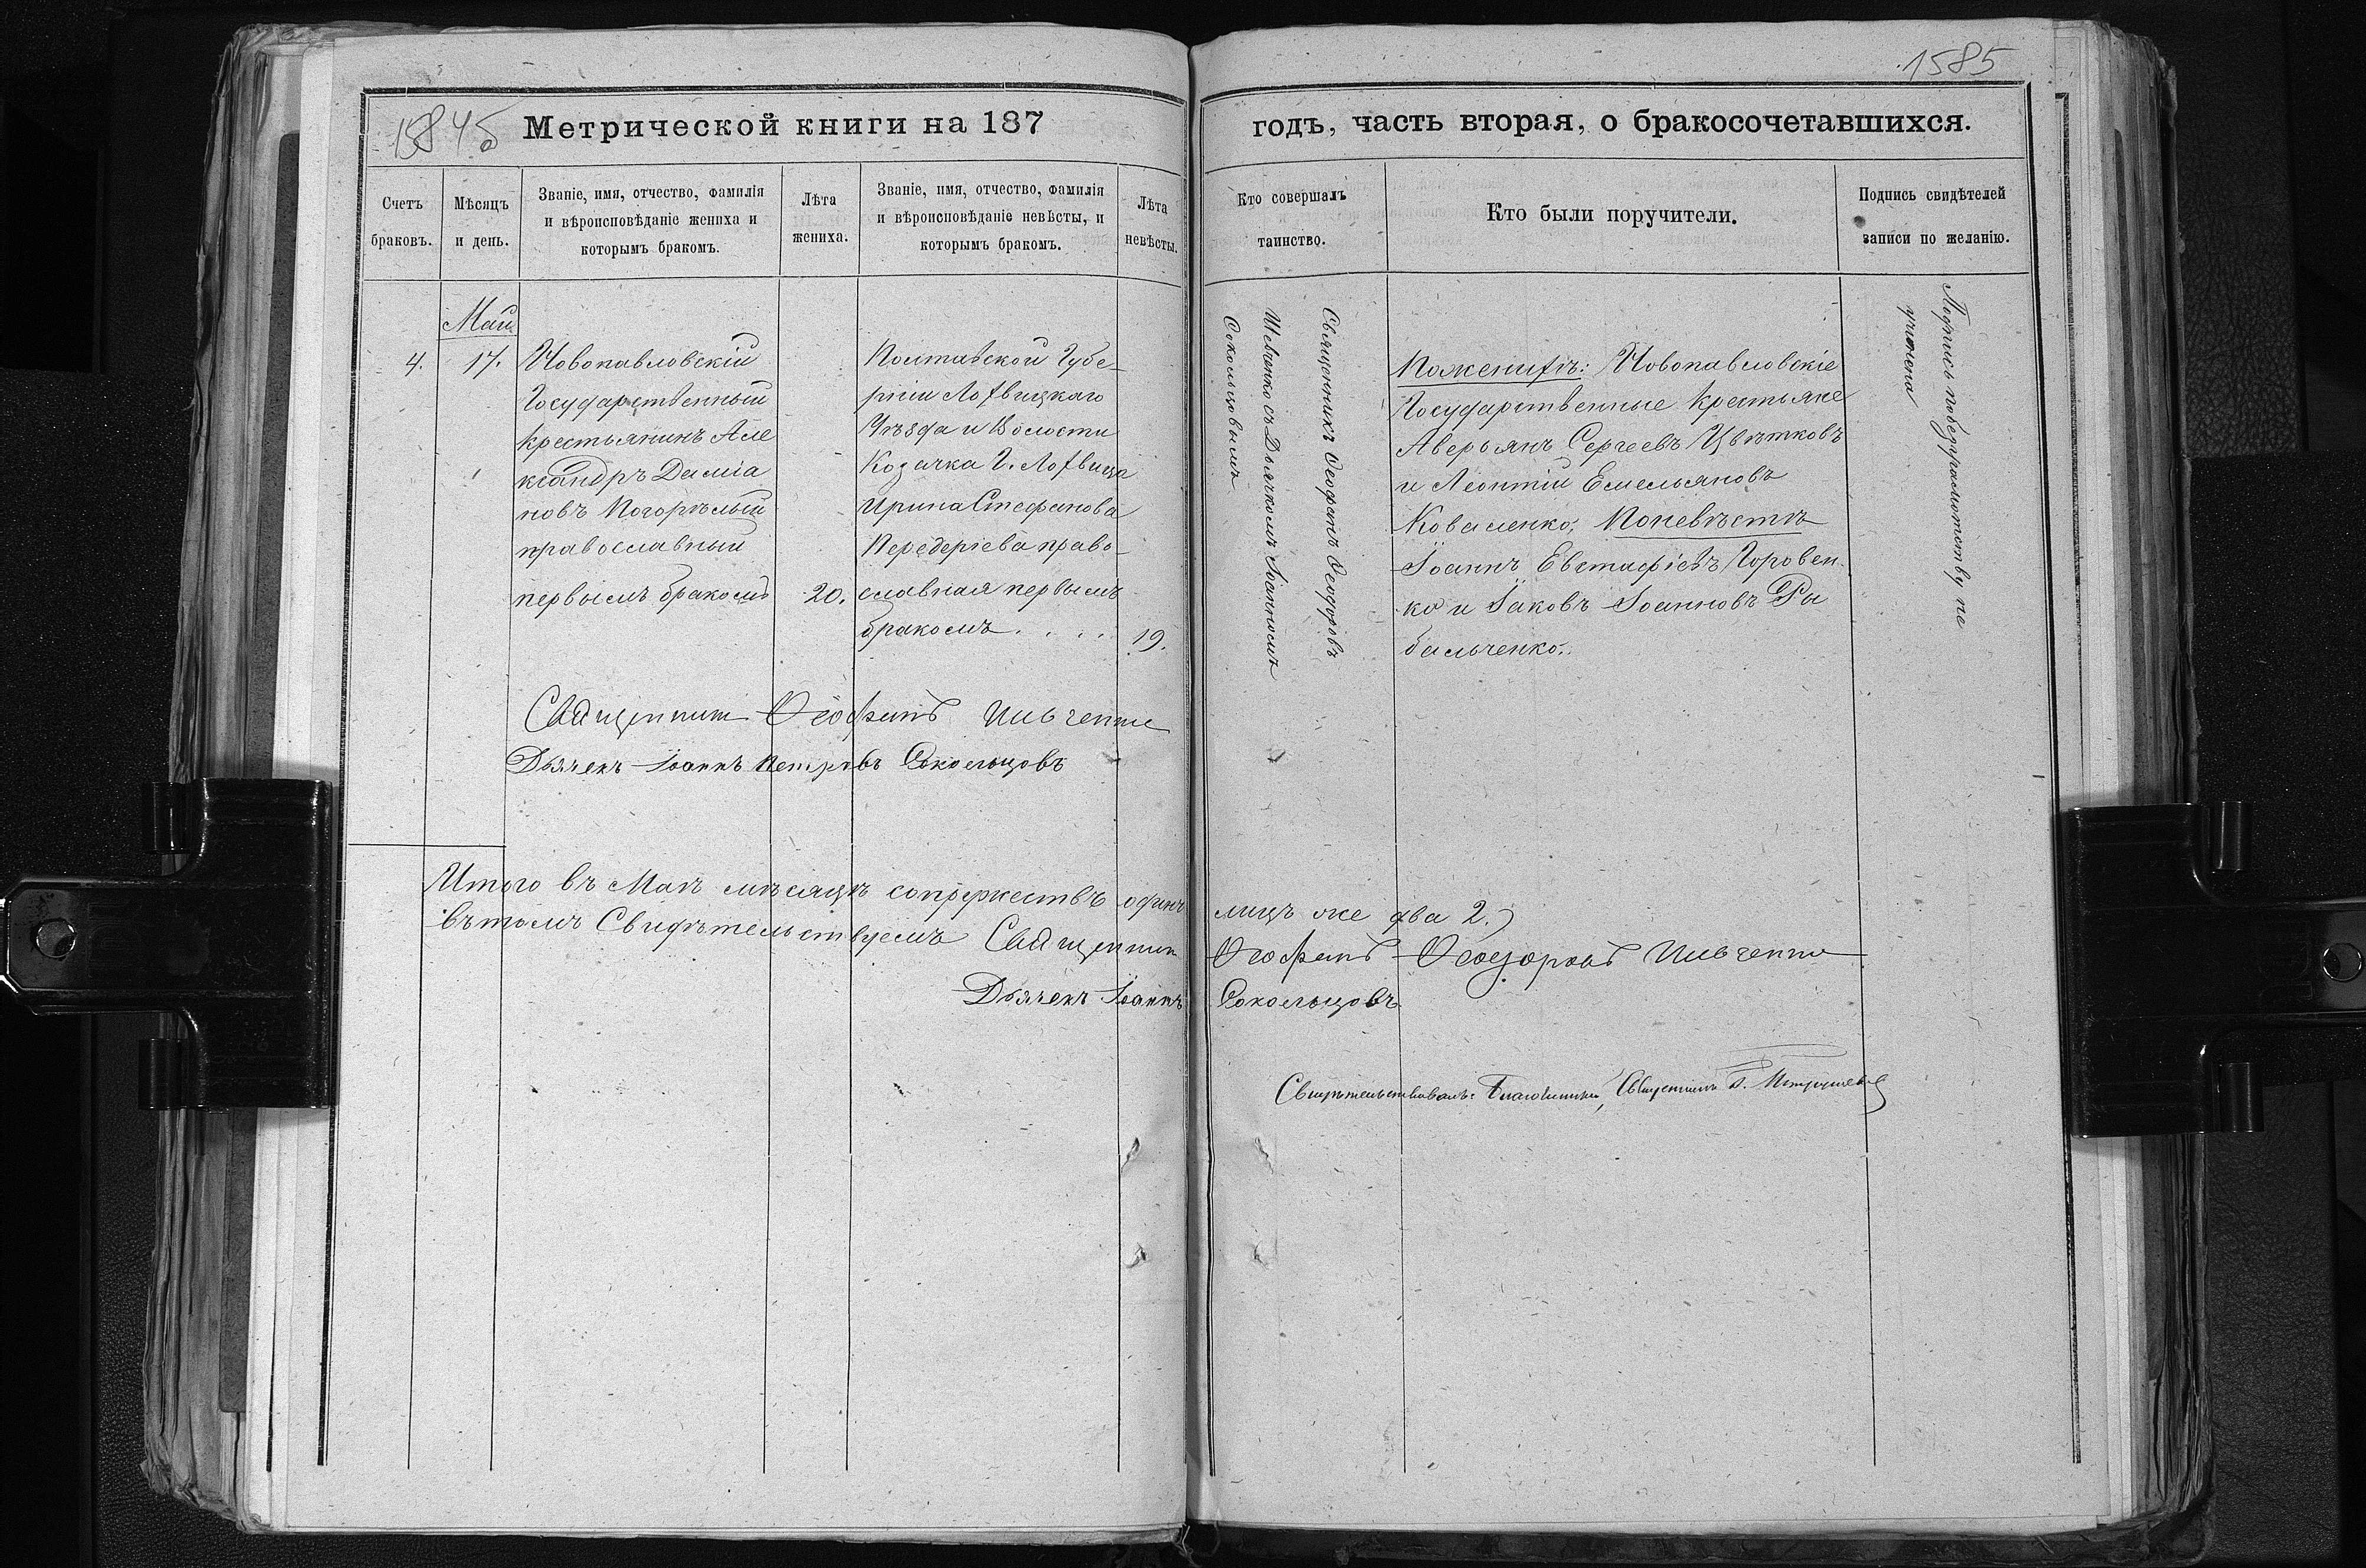 1585
Метрической книги на 187
годъ, часть вторая, о бракосочетавшихся.
Счетъ браковъ.
Мѣсяцъ и день.
Званіе, имя, отчество, фамилія
и вѣроисповѣданіе жениха и
которымъ бракомъ.
Лѣта
жениха.
Званіе, имя, отчество, фамилія
и вѣроисповѣданіе невѣсты, и
которымъ бракомъ.
Лѣта
невѣсты.
Кто совершалъ
таинство.
Кто были поручители.
Подпись свидѣтелей
записи по желанію.
Май
4.
17.
Новопавловскій
Государственный
крестьянинъ Але
ксандръ Даміа
новъ Погорѣлый
православный
первымъ бракомъ
20.
Полтавской Губе-
рніи Лохвицкаго
Уѣзда и Волости
Козачка Г. Лохвицы
Ирина Стефанова
Передеріева право-
славная первымъ
бракомъ . . . .
19.
Священникъ Ѳеофанъ Ѳеодоровъ
Шевченко съ Дьячкомъ Іоанномъ
Сокольцовымъ
По женихѣ: Новопавловскіе
Государственные крестьяне
Аверьянъ Сергеевъ Цвѣтковъ
и Леонтій Емельяновъ
Коваленко. По невѣстѣ
Іоаннъ Евстафіевъ Горовен-
ко и Іаковъ Іоанновъ Ра
бальченко.
Подпись по безграмотству не
учинена
Священникъ Ѳеофанъ Шевченко
Дьячекъ Іоаннъ Петровъ Сокольцовъ
Итого въ Маѣ мѣсяцѣ супружествъ одинъ лицъ же два 2.
въ томъ Свидѣтельствуемъ Священникъ Ѳеофанъ Ѳеодоровъ Шевченко
Дьячекъ Іоаннъ Сокольцовъ
Свидѣтельствовалъ: Благочинный, Священникъ